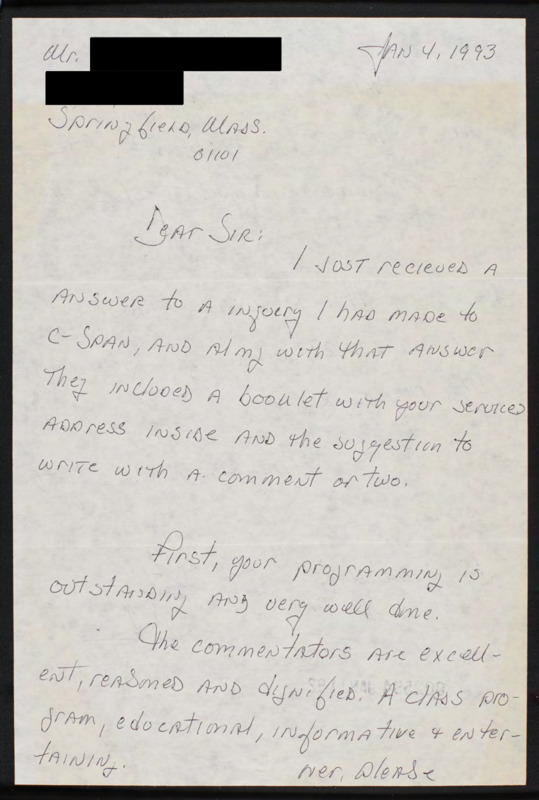 Mr.
JAN 4, 1993
Springfield, Mass.
01101
Dear Sir:
I just recieved a
answer to a inquery I had made to
C-Span, and along with that answer
they included a booklet with your services
address inside and the suggestion to
write with a comment or two.
First, your programming is
outstanding and very well done.
The commentators are excell-
ent, reasoned and dignified. A class pro-
gram, educational, informative & enter-
taining.
over, please